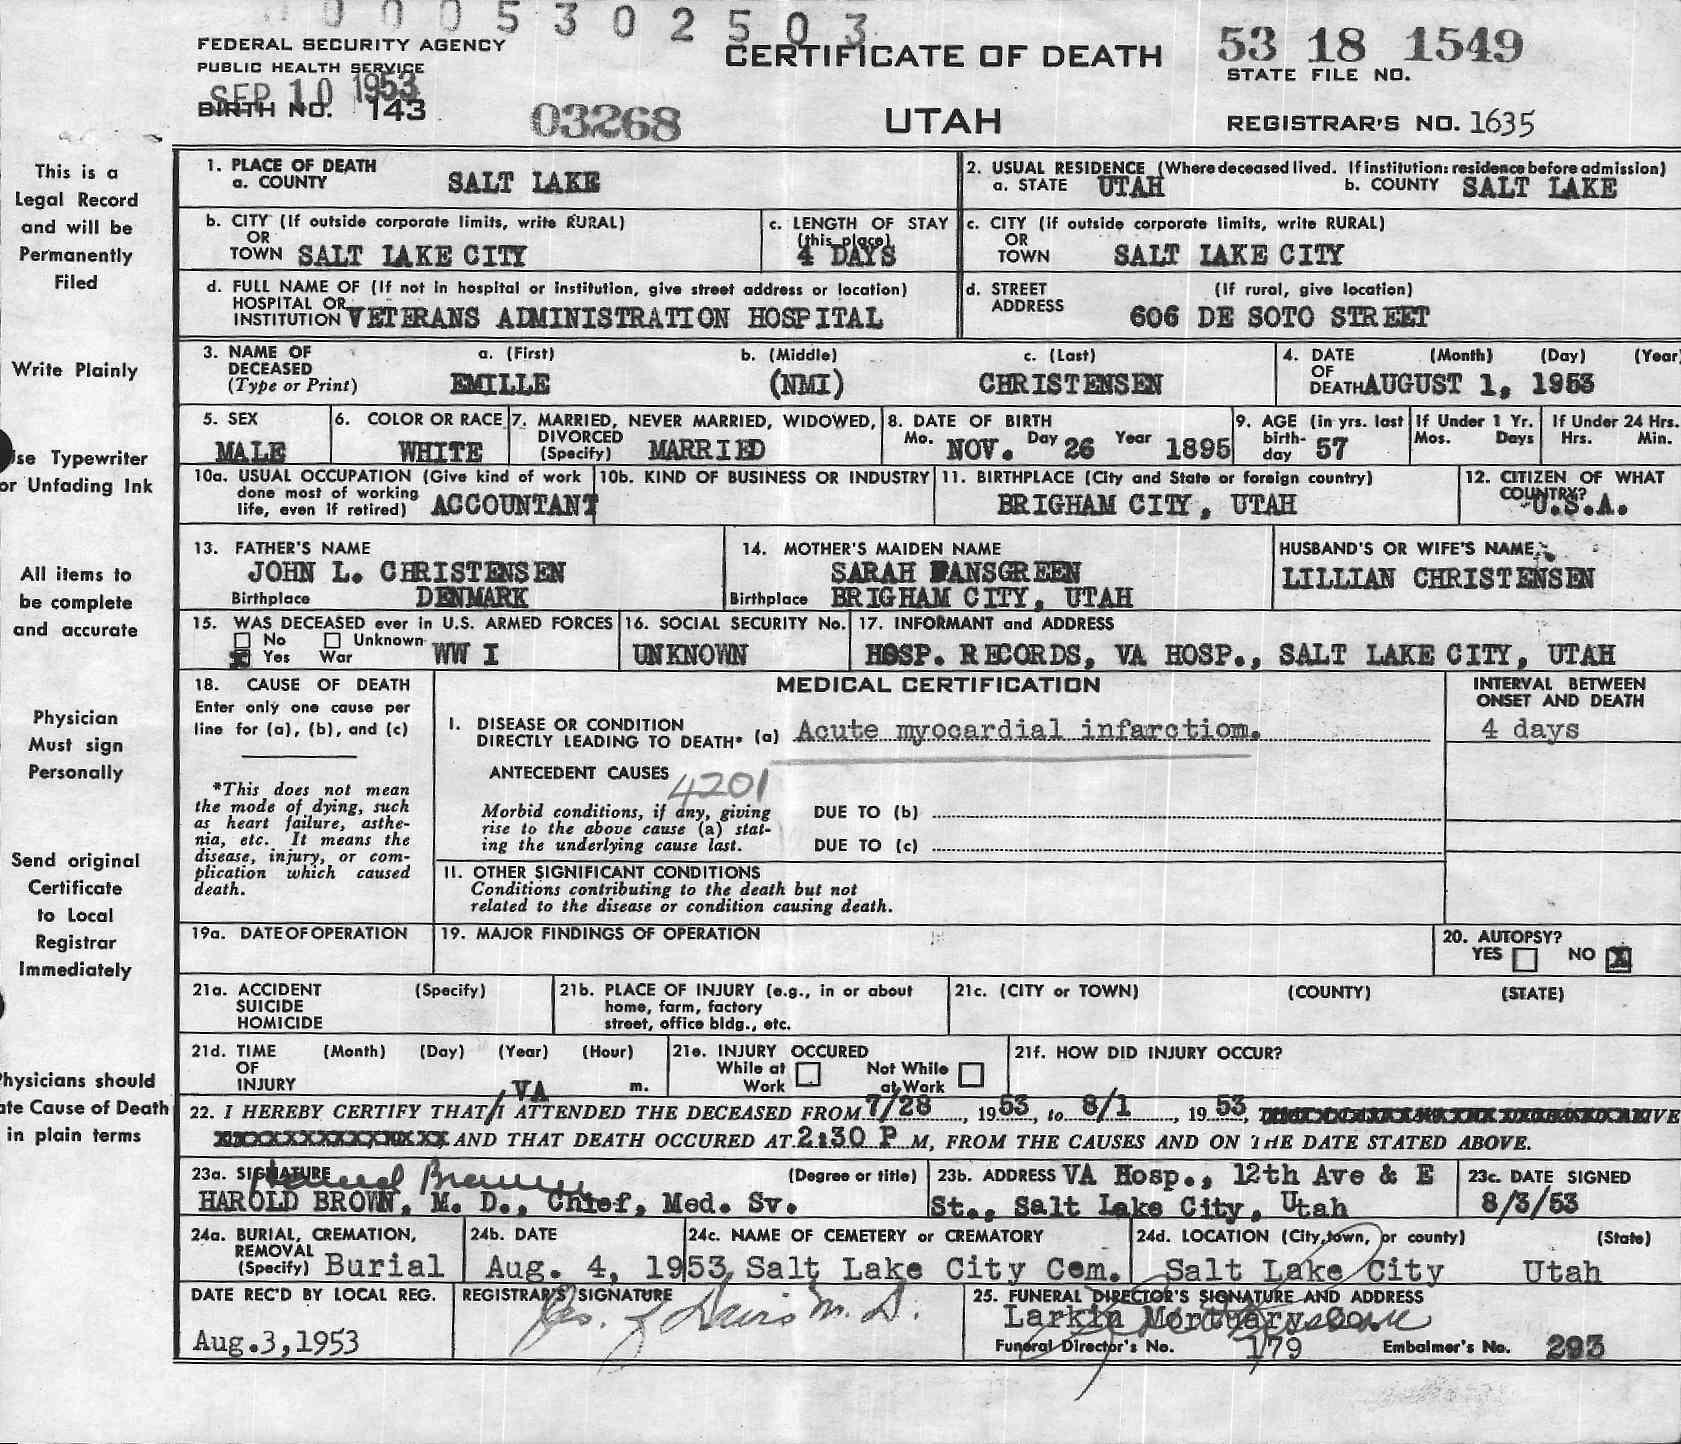 0005302503
FEDERAL SECURITY AGENCY
PUBLIC HEALTH SERVICE
SEP 10 1953
BIRTH NO. 143
03268
CERTIFICATE OF DEATH
UTAH
53 18 1549
STATE FILE NO.
REGISTRAR'S NO. 1635
This is a
Legal Record
and will be
Permanently
Filed
Write Plainly
Use Typewriter
or Unfading Ink
All items to
be complete
and accurate
Physician
Must sign
Personally
Send original
Certificate
to Local
Registrar
Immediately
Physicians should
ate Cause of Death
in plain terms
1. PLACE OF DEATH
a. COUNTY SALT LAKE
2. USUAL RESIDENCE (Where deceased lived. If institution: residence before admission)
a. STATE UTAH b. COUNTY SALT LAKE
b. CITY (If outside corporate limits, write RURAL)
OR
TOWN SALT LAKE CITY
c. LENGTH OF STAY
(this place)
4 DAYS
c. CITY (If outside corporate limits, write RURAL)
OR
TOWN SALT LAKE CITY
d. FULL NAME OF (If not in hospital or institution, give street address or location)
HOSPITAL OR
INSTITUTION VETERANS ADMINISTRATION HOSPITAL
d. STREET (If rural, give location)
ADDRESS 606 DE SOTO STREET
3. NAME OF DECEASED (Type or Print)
a. (First) b. (Middle) c. (Last)
EMILLE (NMI) CHRISTENSEN
4. DATE (Month) (Day) (Year)
OF
DEATH AUGUST 1, 1953
5. SEX
MALE
6. COLOR OR RACE
WHITE
7. MARRIED, NEVER MARRIED, WIDOWED,
DIVORCED
(Specify) MARRIED
8. DATE OF BIRTH
Mo. NOV. Day 26 Year 1895
9. AGE (in yrs. last
birth-
day 57
If Under 1 Yr.
Mos. Days
If Under 24 Hrs.
Hrs. Min.
10a. USUAL OCCUPATION (Give kind of work
done most of working
life, even if retired) ACCOUNTANT
10b. KIND OF BUSINESS OR INDUSTRY
11. BIRTHPLACE (City and State or foreign country)
BRIGHAM CITY, UTAH
12. CITIZEN OF WHAT
COUNTRY?
U.S.A.
13. FATHER'S NAME
JOHN L. CHRISTENSEN
Birthplace DENMARK
14. MOTHER'S MAIDEN NAME
SARAH HANSGREEN
Birthplace BRIGHAM CITY, UTAH
HUSBAND'S OR WIFE'S NAME
LILLIAN CHRISTENSEN
15. WAS DECEASED ever in U.S. ARMED FORCES
No Unknown
X Yes War WW I
16. SOCIAL SECURITY No.
UNKNOWN
17. INFORMANT and ADDRESS
HOSP. RECORDS, VA HOSP., SALT LAKE CITY, UTAH
18. CAUSE OF DEATH
Enter only one cause per
line for (a), (b), and (c)
*This does not mean
the mode of dying, such
as heart failure, asthe-
nia, etc. It means the
disease, injury, or com-
plication which caused
death.
MEDICAL CERTIFICATION
I. DISEASE OR CONDITION
DIRECTLY LEADING TO DEATH* (a) Acute myocardial infarction.
ANTECEDENT CAUSES
4201
Morbid conditions, if any, giving
rise to the above cause (a) stat-
ing the underlying cause last.
DUE TO (b)
DUE TO (c)
II. OTHER SIGNIFICANT CONDITIONS
Conditions contributing to the death but not
related to the disease or condition causing death.
INTERVAL BETWEEN
ONSET AND DEATH
4 days
19a. DATE OF OPERATION
19. MAJOR FINDINGS OF OPERATION
20. AUTOPSY?
YES NO X
21a. ACCIDENT (Specify)
SUICIDE
HOMICIDE
21b. PLACE OF INJURY (e.g., in or about
home, farm, factory
street, office bldg., etc.
21c. (CITY or TOWN) (COUNTY) (STATE)
21d. TIME (Month) (Day) (Year) (Hour)
OF
INJURY m.
21e. INJURY OCCURED
While at Work Not While at Work
21f. HOW DID INJURY OCCUR?
VA
22. I HEREBY CERTIFY THAT/I ATTENDED THE DECEASED FROM 7/28, 1953, to 8/1, 1953,
AND THAT DEATH OCCURED AT 2:30 P M, FROM THE CAUSES AND ON THE DATE STATED ABOVE.
23a. SIGNATURE (Degree or title)
Harold Brown
HAROLD BROWN, M. D., Chief, Med. Sv.
23b. ADDRESS VA Hosp., 12th Ave & E
St., Salt Lake City, Utah
23c. DATE SIGNED
8/3/53
24a. BURIAL, CREMATION,
REMOVAL
(Specify) Burial
24b. DATE
Aug. 4, 1953
24c. NAME OF CEMETERY OR CREMATORY
Salt Lake City Cem.
24d. LOCATION (City, town, or county) (State)
Salt Lake City Utah
DATE REC'D BY LOCAL REG.
Aug.3,1953
REGISTRAR'S SIGNATURE
Davis M. D.
25. FUNERAL DIRECTOR'S SIGNATURE AND ADDRESS
Larkin Mortuary Co.
Funeral Director's No. 179 Embalmer's No. 293